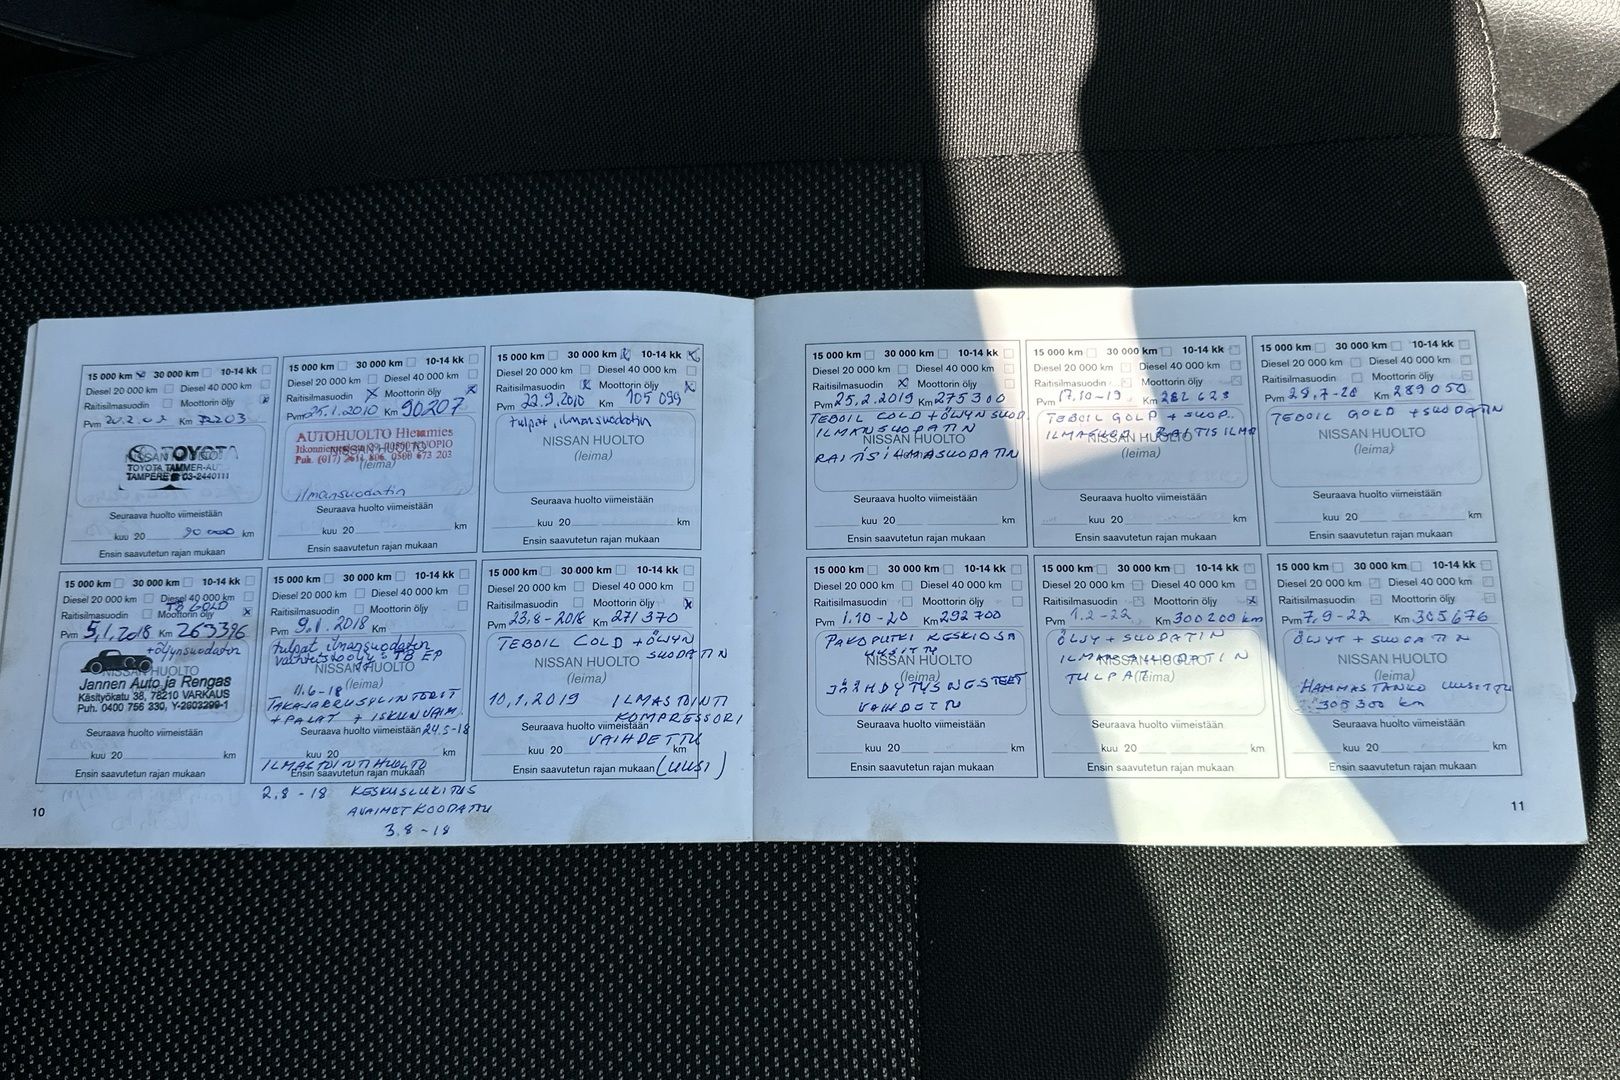 15 000 km 30 000 km 10-14 kk
Diesel 20 000 km Diesel 40 000 km
Raitisilmasuodin Moottorin öljy
Pvm Km
NISSAN HUOLTO
TOYOTA
TOYOTA TAMMER-AU
TAMPERE 03-2440111
Seuraava huolto viimeistään
kuu 20 90 000 km
Ensin saavutetun rajan mukaan
15 000 km 30 000 km 10-14 kk
Diesel 20 000 km Diesel 40 000 km
Raitisilmasuodin Moottorin öljy
Pvm 25.1.2010 Km 90207
AUTOHUOLTO Hiermies
NISSAN HUOLTO
(leima)
ilmansuodatin
Seuraava huolto viimeistään
kuu 20 km
Ensin saavutetun rajan mukaan
15 000 km 30 000 km 10-14 kk
Diesel 20 000 km Diesel 40 000 km
Raitisilmasuodin Moottorin öljy
Pvm 22.9.2010 Km 105 099
tulpat, ilmansuodatin
NISSAN HUOLTO
(leima)
Seuraava huolto viimeistään
kuu 20 km
Ensin saavutetun rajan mukaan
15 000 km 30 000 km 10-14 kk
Diesel 20 000 km Diesel 40 000 km
Raitisilmasuodin Moottorin öljy
Pvm 25.2.2019 Km 275300
TEBOIL GOLD + ÖLJYN SUOD.
ILMANSUODATIN
NISSAN HUOLTO
(leima)
RAITISILMASUODATIN
Seuraava huolto viimeistään
kuu 20 km
Ensin saavutetun rajan mukaan
15 000 km 30 000 km 10-14 kk
Diesel 20 000 km Diesel 40 000 km
Raitisilmasuodin Moottorin öljy
Pvm 17.10-19 Km 282 623
TEBOIL GOLD + SUOD.
ILMASUOD. RAITISILMA
NISSAN HUOLTO
(leima)
Seuraava huolto viimeistään
kuu 20 km
Ensin saavutetun rajan mukaan
15 000 km 30 000 km 10-14 kk
Diesel 20 000 km Diesel 40 000 km
Raitisilmasuodin Moottorin öljy
Pvm 29.7-20 Km 289050
TEBOIL GOLD + SUODATIN
NISSAN HUOLTO
(leima)
Seuraava huolto viimeistään
kuu 20 km
Ensin saavutetun rajan mukaan
15 000 km 30 000 km 10-14 kk
Diesel 20 000 km Diesel 40 000 km
TB GOLD
Raitisilmasuodin Moottorin öljy
Pvm 5.1.2018 Km 263396
+öljynsuodatin
NISSAN HUOLTO
Jannen Auto ja Rengas
Käsityökatu 38, 78210 VARKAUS
Puh. 0400 756 330, Y-2603299-1
Seuraava huolto viimeistään
kuu 20 km
Ensin saavutetun rajan mukaan
15 000 km 30 000 km 10-14 kk
Diesel 20 000 km Diesel 40 000 km
Raitisilmasuodin Moottorin öljy
Pvm 9.1.2018 Km
tulpat ilmansuodatin
vaihteistoöljy: TB EP
NISSAN HUOLTO
(leima)
11.6-18
TAKAJARRUSYLINTERIT
+ PALAT + ISKUNVAIM.
Seuraava huolto viimeistään 24.5-18
kuu 20 km
ILMASTOINTIHUOLTO
Ensin saavutetun rajan mukaan
2.8-18 KESKUSLUKITUS
AVAIMET KOODATTU
3.8-18
15 000 km 30 000 km 10-14 kk
Diesel 20 000 km Diesel 40 000 km
Raitisilmasuodin Moottorin öljy
Pvm 23.8-2018 Km 271 370
TEBOIL GOLD + ÖLJYN
SUODATIN
NISSAN HUOLTO
(leima)
10.1.2019 ILMASTOINTI
KOMPRESSORI
Seuraava huolto viimeistään
VAIHDETTU
kuu 20 km
Ensin saavutetun rajan mukaan (UUSI)
15 000 km 30 000 km 10-14 kk
Diesel 20 000 km Diesel 40 000 km
Raitisilmasuodin Moottorin öljy
Pvm 1.10-20 Km 292700
PAKOPUTKI KESKIOSA
UUSITTU
NISSAN HUOLTO
(leima)
JÄÄHDYTYSNESTEET
VAIHDETTU
Seuraava huolto viimeistään
kuu 20 km
Ensin saavutetun rajan mukaan
15 000 km 30 000 km 10-14 kk
Diesel 20 000 km Diesel 40 000 km
Raitisilmasuodin Moottorin öljy
Pvm 1.2-22 Km 300200 km
ÖLJY + SUODATIN
ILMANSUODATIN
NISSAN HUOLTO
TULPAT
(leima)
Seuraava huolto viimeistään
kuu 20 km
Ensin saavutetun rajan mukaan
15 000 km 30 000 km 10-14 kk
Diesel 20 000 km Diesel 40 000 km
Raitisilmasuodin Moottorin öljy
Pvm 7.9-22 Km 305676
ÖLJYT + SUODATIN
NISSAN HUOLTO
(leima)
HAMMASTANKO UUSITTU
305300 km
Seuraava huolto viimeistään
kuu 20 km
Ensin saavutetun rajan mukaan
10
11